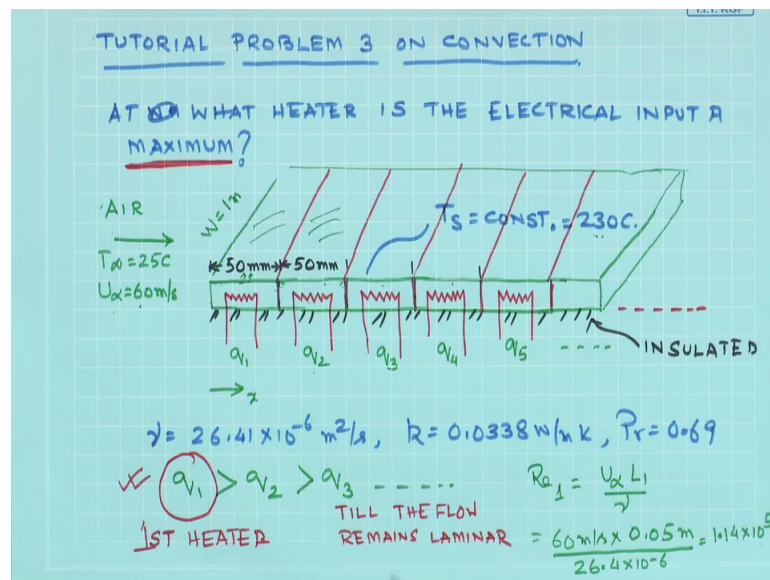 I.I.T. KGP
TUTORIAL PROBLEM 3 ON CONVECTION
AT WHAT HEATER IS THE ELECTRICAL INPUT A
MAXIMUM?
AIR
T∞ = 25C
U∞ = 60m/s
W=1m
Ts = CONST. = 230C.
50mm 50mm
q1 q2 q3 q4 q5 ----
INSULATED
x
ν = 26.41 × 10^-6 m²/s, k = 0.0338 W/mK, Pr = 0.69
q1 > q2 > q3 -----
1ST HEATER
TILL THE FLOW
REMAINS LAMINAR
Re1 = U∞ L1 / ν
= 60m/s × 0.05m / 26.4×10^-6 = 1.14×10^5